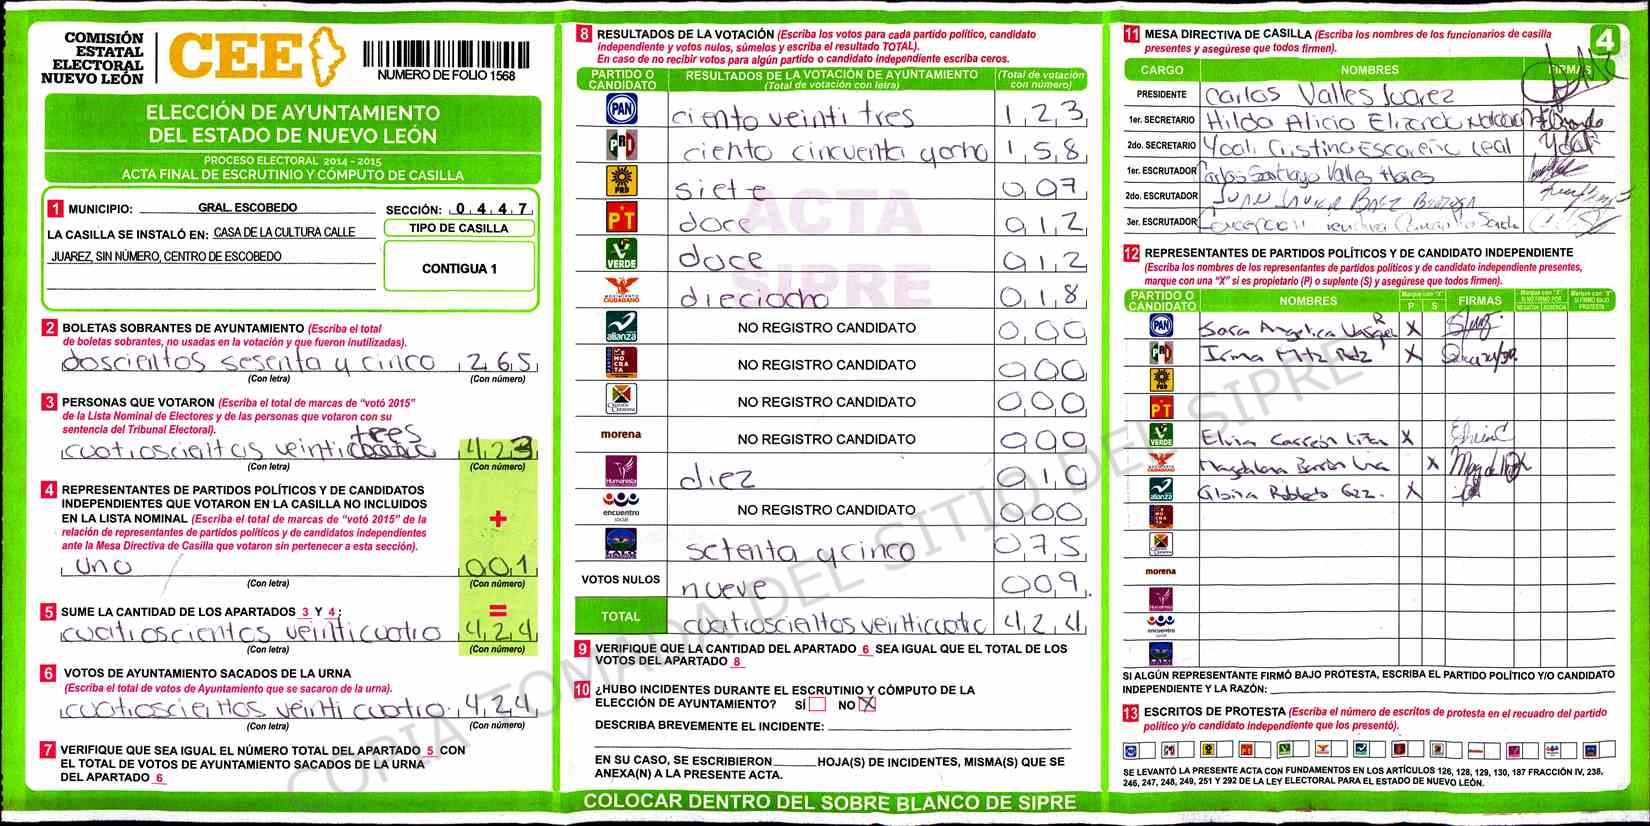 COMISIÓN
ESTATAL
ELECTORAL
NUEVO LEÓN
CEE
NUMERO DE FOLIO 1568
ELECCIÓN DE AYUNTAMIENTO
DEL ESTADO DE NUEVO LEÓN
PROCESO ELECTORAL 2014 - 2015
ACTA FINAL DE ESCRUTINIO Y CÓMPUTO DE CASILLA
1 MUNICIPIO: GRAL. ESCOBEDO SECCIÓN: 0 4 4 7
LA CASILLA SE INSTALÓ EN: CASA DE LA CULTURA CALLE
JUAREZ, SIN NÚMERO, CENTRO DE ESCOBEDO
TIPO DE CASILLA
CONTIGUA 1
2 BOLETAS SOBRANTES DE AYUNTAMIENTO (Escriba el total
de boletas sobrantes, no usadas en la votación y que fueron inutilizadas).
doscientos sesenta y cinco 2 6 5
(Con letra) (Con número)
3 PERSONAS QUE VOTARON (Escriba el total de marcas de "votó 2015"
de la Lista Nominal de Electores y de las personas que votaron con su
sentencia del Tribunal Electoral).
tres
cuatroscientas veinti 4 2 3
(Con letra) (Con número)
4 REPRESENTANTES DE PARTIDOS POLÍTICOS Y DE CANDIDATOS
INDEPENDIENTES QUE VOTARON EN LA CASILLA NO INCLUIDOS
EN LA LISTA NOMINAL (Escriba el total de marcas de "votó 2015" de la
relación de representantes de partidos políticos y de candidatos independientes
ante la Mesa Directiva de Casilla que votaron sin pertenecer a esta sección).
+
uno 0 0 1
(Con letra) (Con número)
5 SUME LA CANTIDAD DE LOS APARTADOS 3 Y 4: =
cuatroscientos veinticuatro 4 2 4
(Con letra) (Con número)
6 VOTOS DE AYUNTAMIENTO SACADOS DE LA URNA
(Escriba el total de votos de Ayuntamiento que se sacaron de la urna).
cuatroscientos veinti cuatro 4 2 4
(Con letra) (Con número)
7 VERIFIQUE QUE SEA IGUAL EL NÚMERO TOTAL DEL APARTADO 5 CON
EL TOTAL DE VOTOS DE AYUNTAMIENTO SACADOS DE LA URNA
DEL APARTADO 6
8 RESULTADOS DE LA VOTACIÓN (Escriba los votos para cada partido político, candidato
independiente y votos nulos, súmelos y escriba el resultado TOTAL).
En caso de no recibir votos para algún partido o candidato independiente escriba ceros.
PARTIDO O CANDIDATO
RESULTADOS DE LA VOTACIÓN DE AYUNTAMIENTO
(Total de votación con letra)
(Total de votación con número)
PAN ciento veinti tres 1 2 3
PRI ciento cincuenta y ocho 1 5 8
PRD siete 0 0 7
PT doce 0 1 2
VERDE doce 0 1 2
MOVIMIENTO CIUDADANO dieciocho 0 1 8
alianza NO REGISTRO CANDIDATO 0 0 0
DEMOCRATA NO REGISTRO CANDIDATO 0 0 0
NO REGISTRO CANDIDATO 0 0 0
morena NO REGISTRO CANDIDATO 0 0 0
Humanista diez 0 1 0
encuentro social NO REGISTRO CANDIDATO 0 0 0
setenta y cinco 0 7 5
VOTOS NULOS nueve 0 0 9
TOTAL cuatroscientos veinticuatro 4 2 4
ACTA
SIPRE
9 VERIFIQUE QUE LA CANTIDAD DEL APARTADO 6 SEA IGUAL QUE EL TOTAL DE LOS
VOTOS DEL APARTADO 8
10 ¿HUBO INCIDENTES DURANTE EL ESCRUTINIO Y CÓMPUTO DE LA
ELECCIÓN DE AYUNTAMIENTO? SÍ NO X
DESCRIBA BREVEMENTE EL INCIDENTE:
EN SU CASO, SE ESCRIBIERON HOJA(S) DE INCIDENTES, MISMA(S) QUE SE
ANEXA(N) A LA PRESENTE ACTA.
COLOCAR DENTRO DEL SOBRE BLANCO DE SIPRE
11 MESA DIRECTIVA DE CASILLA (Escriba los nombres de los funcionarios de casilla
presentes y asegúrese que todos firmen).
4
CARGO NOMBRES FIRMAS
PRESIDENTE Carlos Valles Juarez
1er. SECRETARIO Hilda Alicia Elizondo
2do. SECRETARIO Yoali Cristina Escareño Leal Yoali
1er. ESCRUTADOR Carlos Santiago Valles Flores
2do. ESCRUTADOR JUAN JAVIER BAEZ
3er. ESCRUTADOR Concepcion
12 REPRESENTANTES DE PARTIDOS POLÍTICOS Y DE CANDIDATO INDEPENDIENTE
(Escriba los nombres de los representantes de partidos políticos y de candidato independiente presentes,
marque con una "X" si es propietario (P) o suplente (S) y asegúrese que todos firmen).
PARTIDO O CANDIDATO NOMBRES Marque con "X" P S FIRMAS Marque con "X" SI NO FIRMÓ POR NEGATIVA AUSENCIA Marque con "X" SI FIRMÓ BAJO PROTESTA
PAN Sara Angelica Vasquez R X
PRI Irma Mtz Rdz X
PRD
PT
VERDE Elvira Carreon X
Magdalena X
alianza Robledo Gzz. X
morena
Humanista
encuentro social
SI ALGÚN REPRESENTANTE FIRMÓ BAJO PROTESTA, ESCRIBA EL PARTIDO POLÍTICO Y/O CANDIDATO
INDEPENDIENTE Y LA RAZÓN:
13 ESCRITOS DE PROTESTA (Escriba el número de escritos de protesta en el recuadro del partido
político y/o candidato independiente que los presentó).
SE LEVANTÓ LA PRESENTE ACTA CON FUNDAMENTOS EN LOS ARTÍCULOS 126, 128, 129, 130, 187 FRACCIÓN IV, 238,
246, 247, 248, 249, 251 Y 292 DE LA LEY ELECTORAL PARA EL ESTADO DE NUEVO LEÓN.
COPIA TOMADA DEL SITIO DEL SIPRE